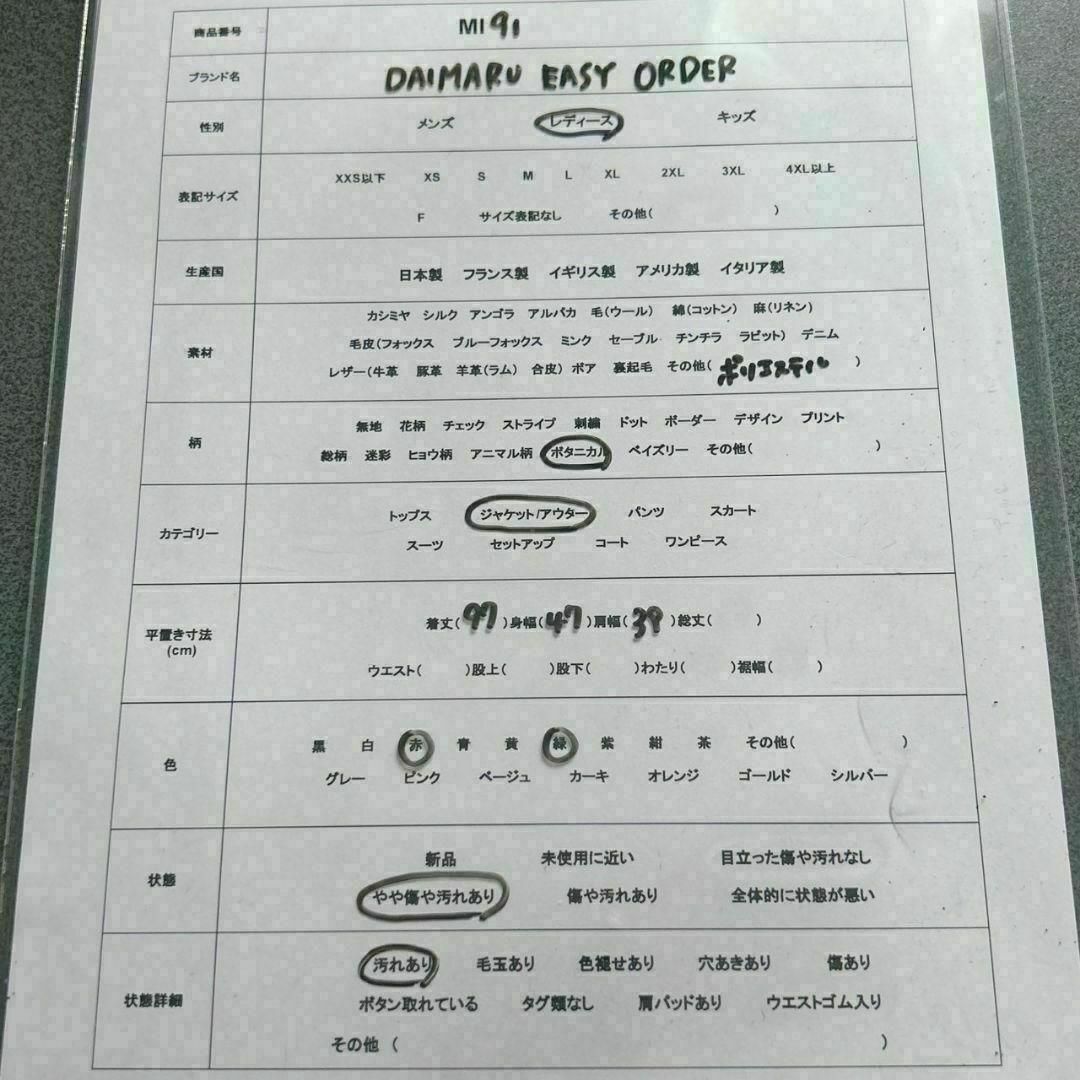 商品番号 MI 91
ブランド名 DAIMARU EASY ORDER
性別 メンズ レディース キッズ
表記サイズ XXS以下 XS S M L XL 2XL 3XL 4XL以上
F サイズ表記なし その他( )
生産国 日本製 フランス製 イギリス製 アメリカ製 イタリア製
カシミヤ シルク アンゴラ アルパカ 毛(ウール) 綿(コットン) 麻(リネン)
素材 毛皮(フォックス ブルーフォックス ミンク セーブル チンチラ ラビット) デニム
レザー(牛革 豚革 羊革(ラム) 合皮) ボア 裏起毛 その他( ポリエステル )
柄 無地 花柄 チェック ストライプ 刺繍 ドット ボーダー デザイン プリント
総柄 迷彩 ヒョウ柄 アニマル柄 ボタニカル ペイズリー その他( )
カテゴリー トップス ジャケット/アウター パンツ スカート
スーツ セットアップ コート ワンピース
平置き寸法 着丈( 97 )身幅( 47 )肩幅( 39 )総丈( )
(cm) ウエスト( )股上( )股下( )わたり( )裾幅( )
色 黒 白 赤 青 黄 緑 紫 紺 茶 その他( )
グレー ピンク ベージュ カーキ オレンジ ゴールド シルバー
状態 新品 未使用に近い 目立った傷や汚れなし
やや傷や汚れあり 傷や汚れあり 全体的に状態が悪い
状態詳細 汚れあり 毛玉あり 色褪せあり 穴あきあり 傷あり
ボタン取れている タグ類なし 肩パッドあり ウエストゴム入り
その他 ( )